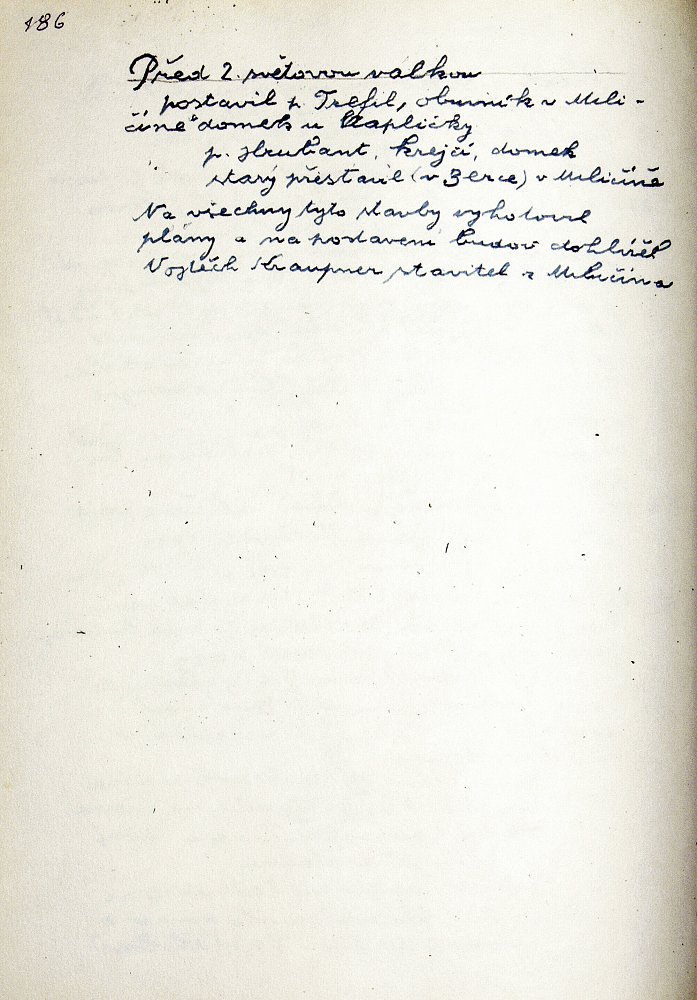 186
Před 2. světovou valkou
postavil p. Trefil, obuvník v Mili-
číně domek u Kapličky
p. Hrubant, krejčí, domek
starý přestavil (v Berce) v Miličíně
Na všechny tyto stavby vyhotovil
plány a na postavení budov dohlížel
Vojtěch Kraupner stavitel z Miličína